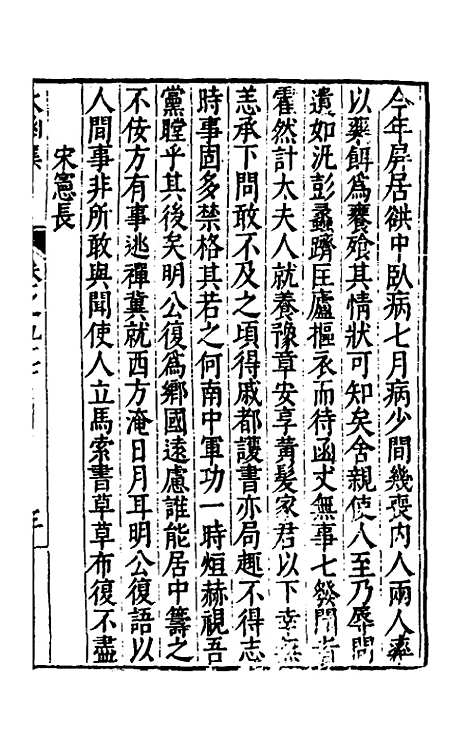 今年屏居谼中臥病七月病少間幾喪內人兩人率
以藥餌爲饔飱其情狀可知矣舍親使人至乃辱問
遺如況彭蠡躋匡廬樞衣而待函丈無事七發門者
霍然計太夫人就養豫章安享黃髮家君以下幸無
恙承下問敢不及之頃得戚都護書亦局趣不得志
時事固多禁格其若之何南中軍功一時烜赫視吾
黨瞠乎其後矣明公復爲鄉國遠慮誰能居中籌之
不佞方有事逃禪冀就西方淹日月耳明公復語以
人間事非所敢與聞使人立馬索書草草布復不盡
宋憲長
太函集
卷之九十